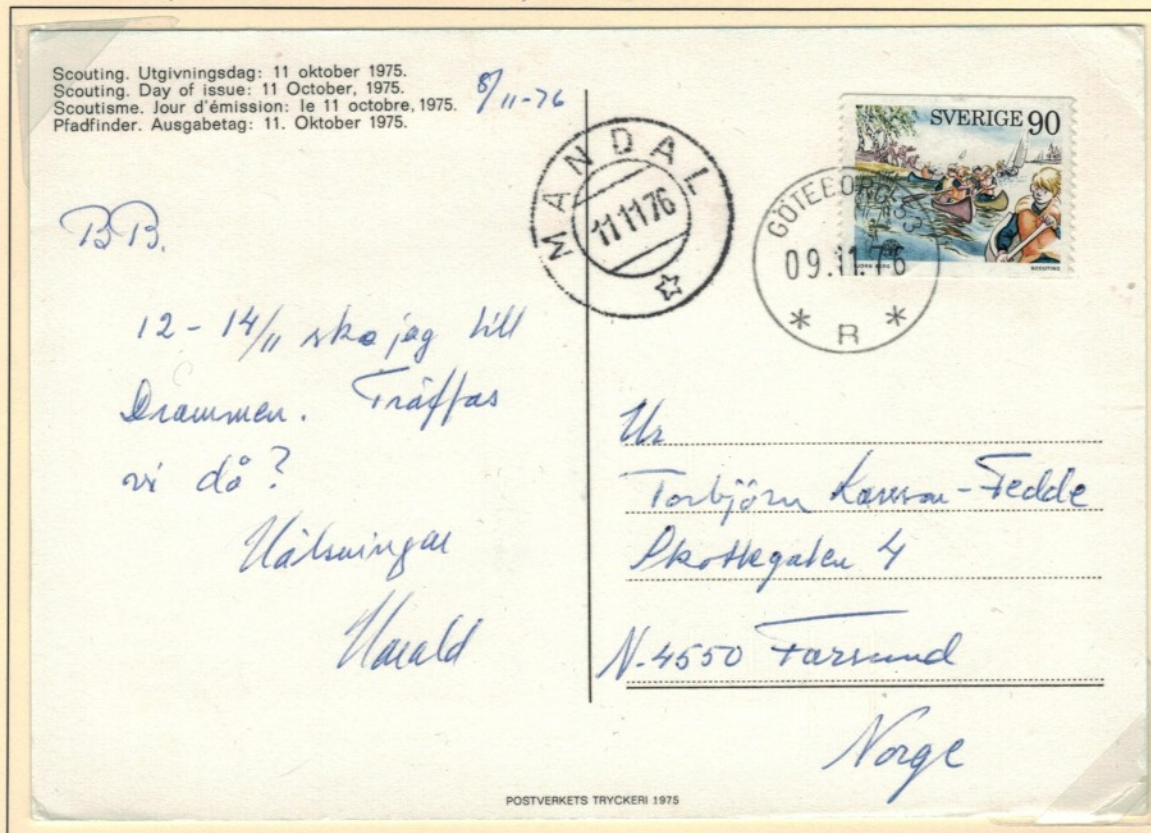 Scouting. Utgivningsdag: 11 oktober 1975.
Scouting. Day of issue: 11 October, 1975.
Scoutisme. Jour d'émission: le 11 octobre, 1975.
Pfadfinder. Ausgabetag: 11. Oktober 1975.
8/11-76
BB.
12-14/11 ska jag till
Drammen. Träffas
vi då?
Hälsningar
Harald
MANDAL
11 11 76
SVERIGE 90
SCOUTING
GÖTEBORG
09.11.76
* R *
Hr
Torbjörn -Fedde
Skottegaten 4
N-4550 Farsund
Norge
POSTVERKETS TRYCKERI 1975